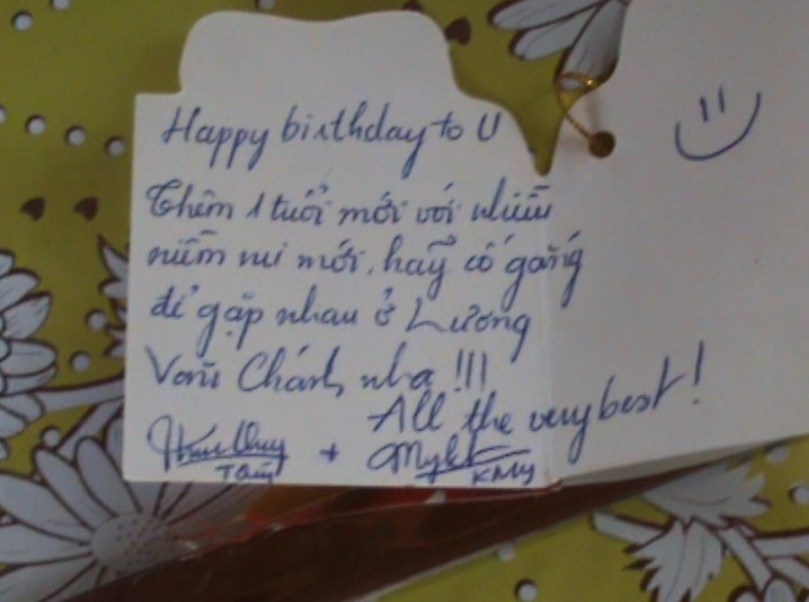 Happy birthday to U
Thêm 1 tuổi mới với nhiều
niềm vui mới, hãy cố gắng
để gặp nhau ở Lương
Văn Chánh nha !!!
All the very best!
+
KMy